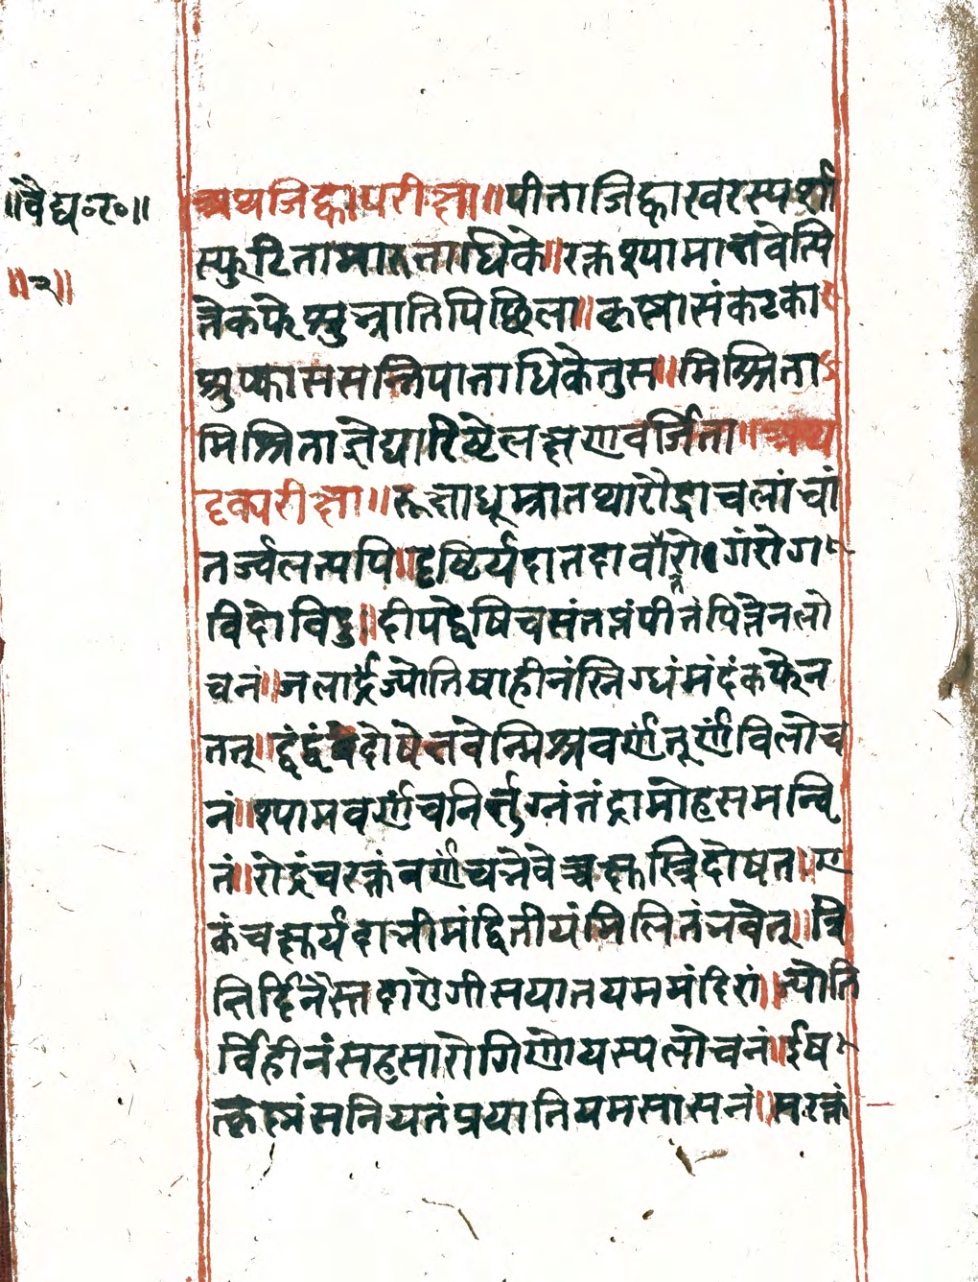 ॥वैद्य०र०॥
॥२॥
अथजिह्वापरीक्षा॥पीताजिह्वाखरस्पर्शा
स्फुटितामारुताधिके॥रक्तश्यामाभवेत्पि
त्तेकफेशुभ्रातिपिछिला॥कृष्णासंकटका
शुष्काससन्निपाताधिकेतुस॥मिश्रिता
मिश्रिताज्ञेयारिष्टेलक्षणवर्जिता॥अथ
दृक्परीक्षा॥रूक्षाधूम्रातथारौद्राचलांचां
तर्ज्वलत्यपि॥दृष्टिर्यदातदावारोगंरोग
विदोविदु॥दीपद्वेषिचसंतप्तंपीतंपित्तेनलो
चनं॥जलार्द्रज्योतिषाहीनंस्निग्धंमंदंकफेन
तत्॥द्वंद्वदोषेभवेन्मिश्रवर्णंतूर्णंविलोच
नं॥श्यामवर्णंचनिर्भुग्नंतंद्रामोहसमन्वि
तं॥रोद्रंचरक्तंवर्णंचभवेच्चक्षुस्त्रिदोषत॥ए
कंचक्षुर्यदाभीमंद्वितीयंमिलितंभवेत्॥त्रि
त्रिर्दिनैस्तदारोगीसयातयममंदिरां॥ज्योति
र्विहीनंसहसारोगिणोयस्यलोचनं॥ईष
त्कृष्णंसनियतंप्रयातियमसासनं॥सरक्तं